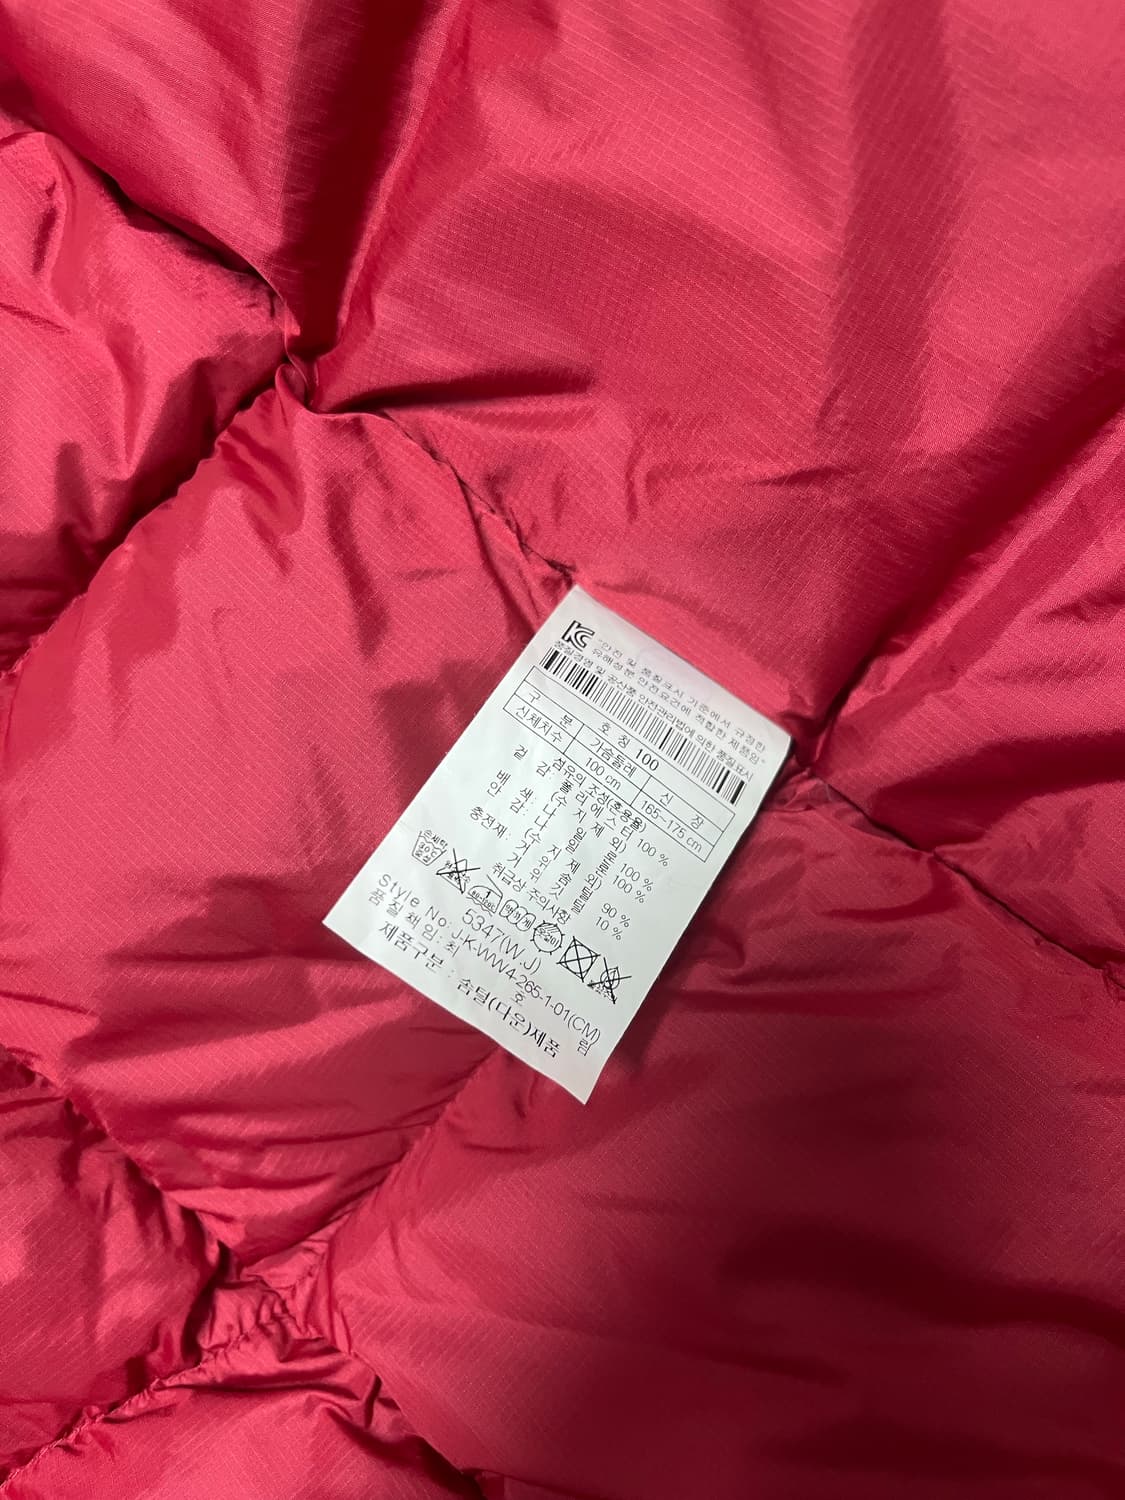 KC "안전 및 품질표시 기준에서 규정한
유해성분 안전요건에 적합한 제품임"
품질경영 및 공산품 안전관리법에 의한 품질표시
구 분 호 칭 100
신체치수 가슴둘레 신 장
100 cm 165~175 cm
섬유의 조성(혼용율)
겉 감: 폴리에스터 100 %
(수 지 제 외)
배 색: 나 일 론 100 %
안 감: 나 일 론 100 %
(수 지 제 외)
충전재: 거 위 솜 털 90 %
거 위 깃 털 10 %
취급상 주의사항
손세탁
30℃
중성
옷걸이
Style No: 5347(W.J)
J-K-WW4-265-1-01(CM)
품질책임: 최 호 림
제품구분 : 솜털(다운)제품